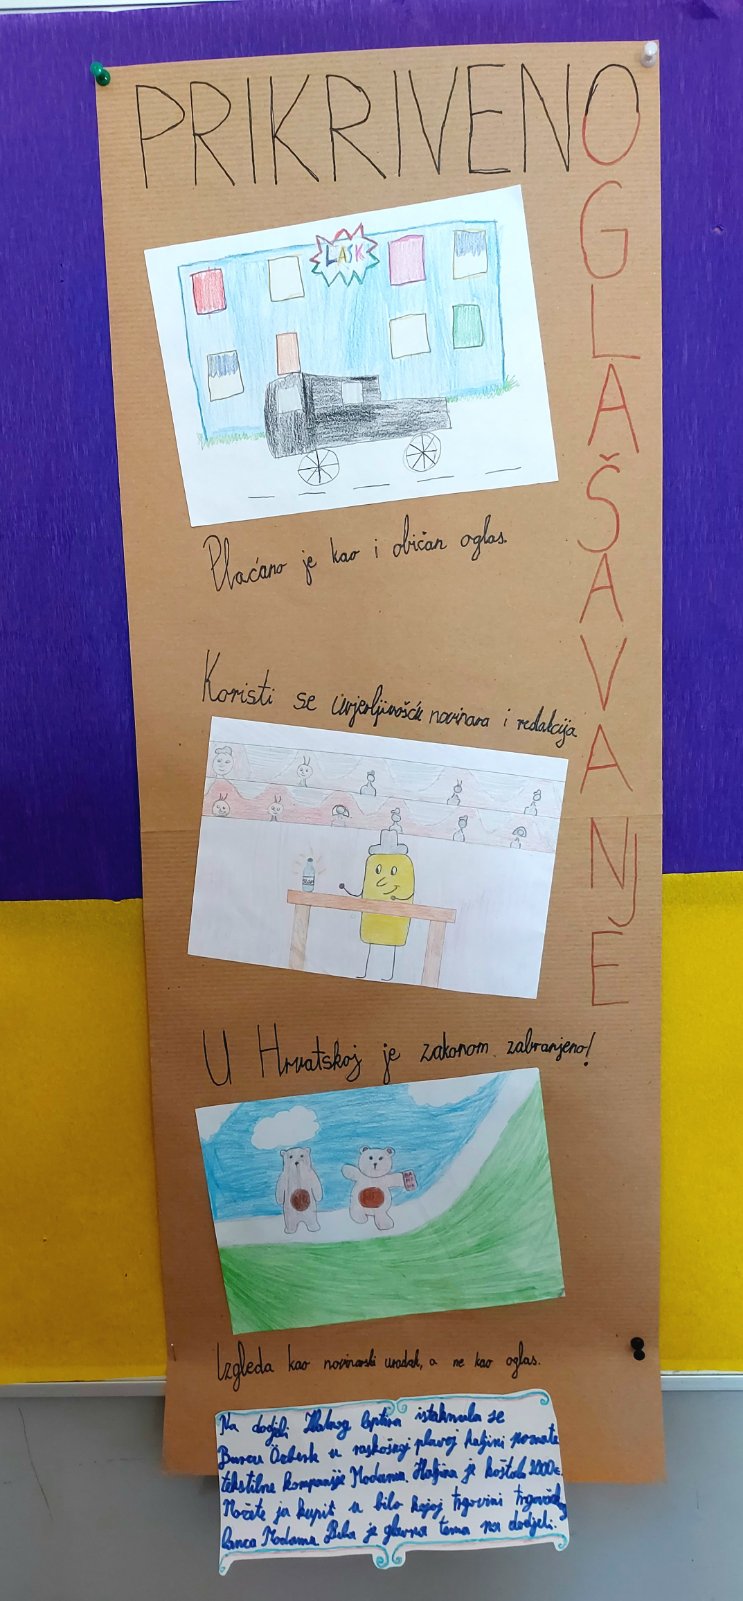 PRIKRIVENO
OGLAŠAVANJE
LASK
Plaćano je kao i običan oglas.
Koristi se uvjerljivošću novinara i redakcija
U Hrvatskoj je zakonom zabranjeno!
Izgleda kao novinarski uradak, a ne kao oglas.
Na dodjeli Zlatnog leptira istaknula se
Burcu Özberk u raskošnoj plavoj haljini poznate
tekstilne kompanije Modama. Haljina je koštala 2000€.
Možete ju kupit u bilo kojoj trgovini trgovačkog
lanca Modama. Bila je glavna tema na dodjeli.